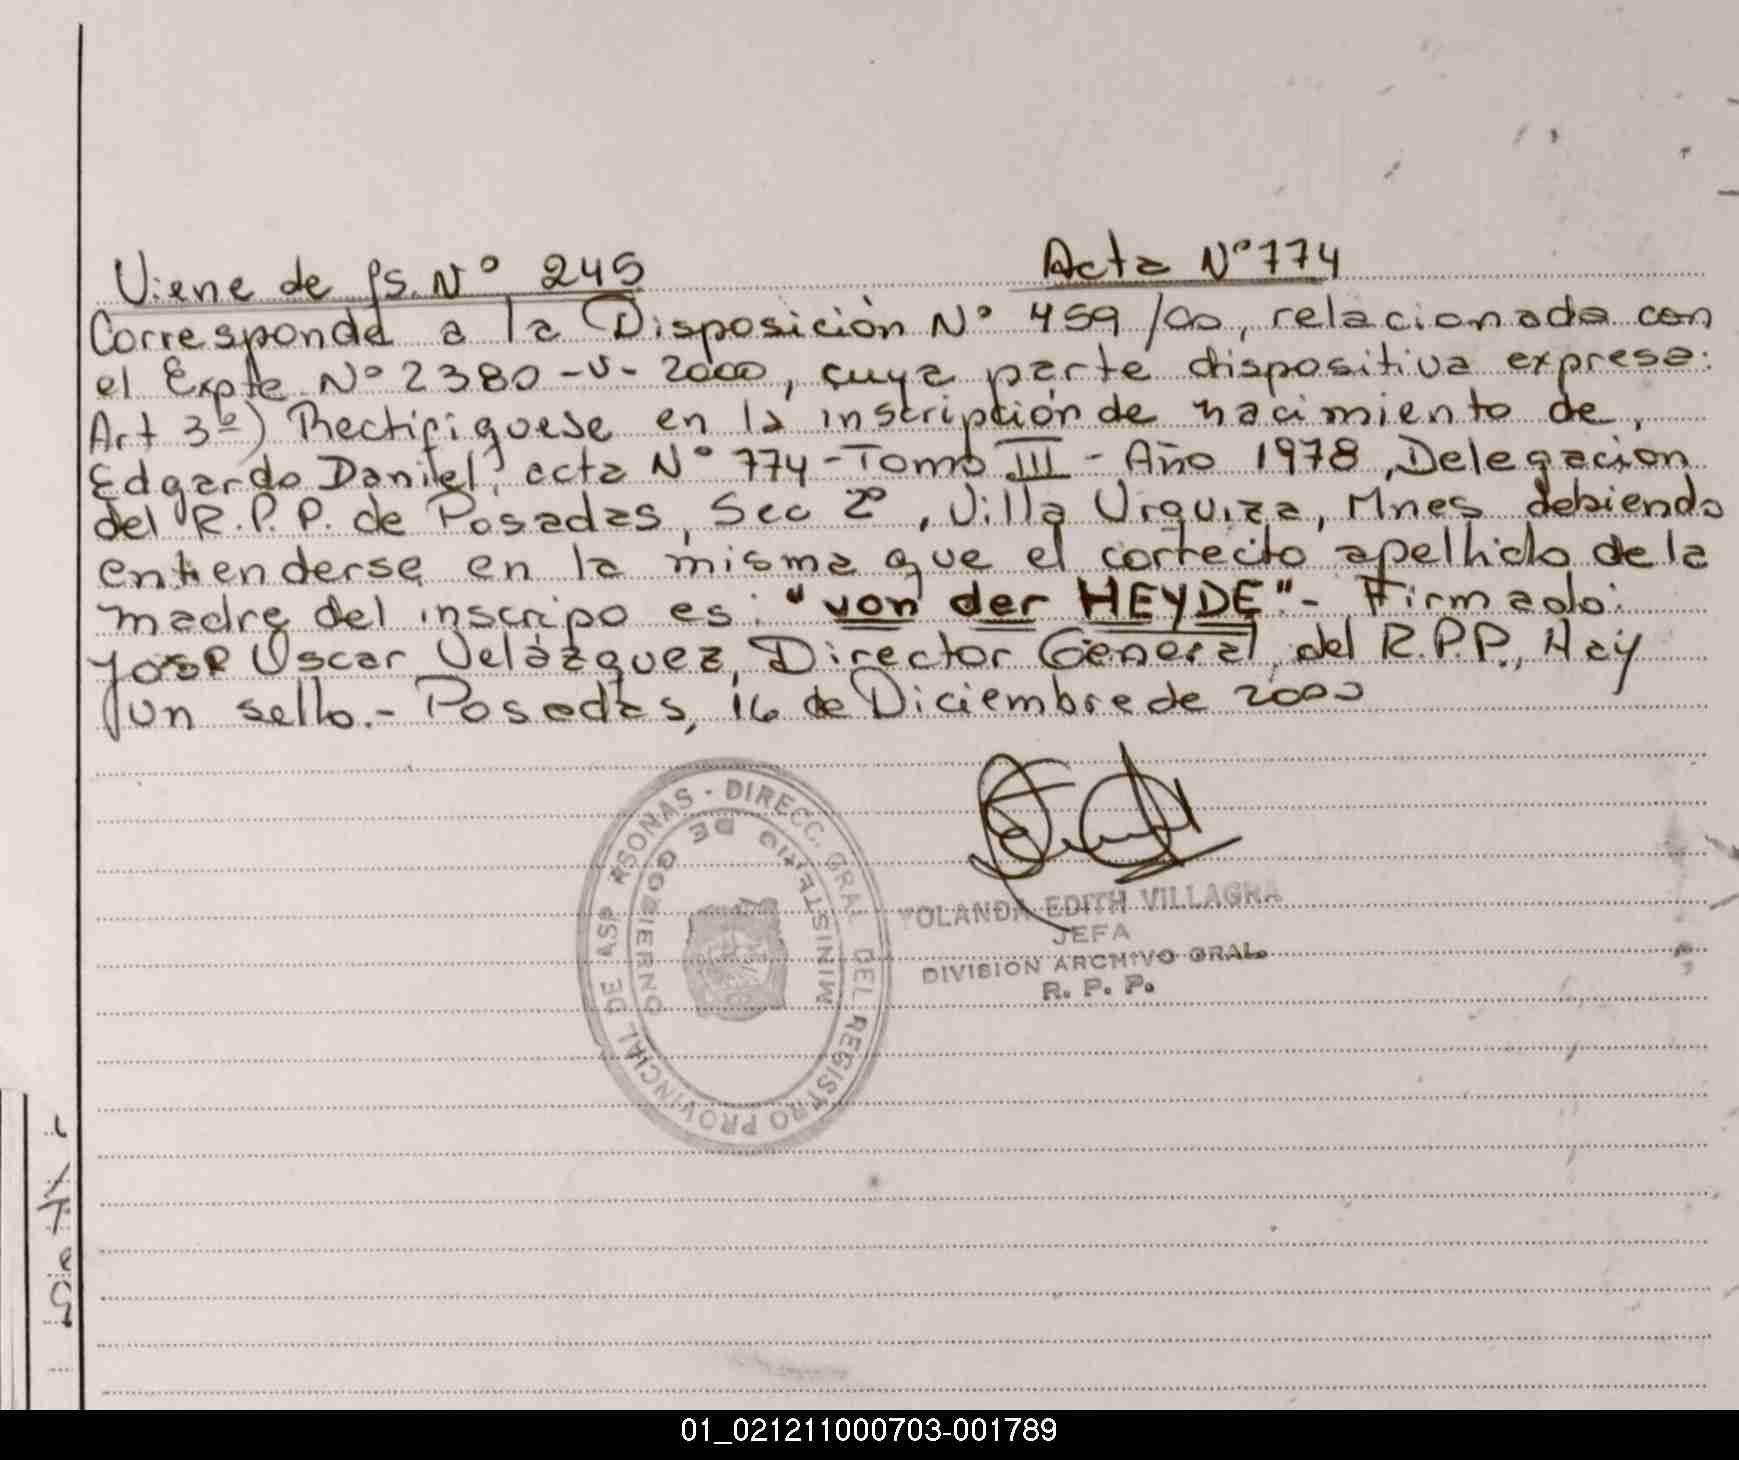 Viene de fs. Nº 245 Acta Nº 774
Corresponde a la Disposición Nº 459/00, relacionada con
el Expte Nº 2380-V-2000, cuya parte dispositiva expresa:
Art 3º) Rectifiquese en la inscripción de nacimiento de,
Edgardo Daniel, acta Nº 774 - Tomo III - Año 1978, Delegacion
del R.P.P. de Posadas, Sec 2º, Villa Urquiza, Mnes debiendo
entienderse en la misma que el correcto apellido de la
madre del inscripo es: "von der HEYDE".- Firmado:
José Oscar Velázquez, Director General, del R.P.P., Hay
un sello.- Posadas, 16 de Diciembre de 2000
DIRECC. GRAL DEL REGISTRO PROVINCIAL DE LAS PERSONAS
MINISTERIO DE GOBIERNO
YOLANDA EDITH VILLAGRA
JEFA
DIVISION ARCHIVO GRAL.
R. P. P.
01_021211000703-001789